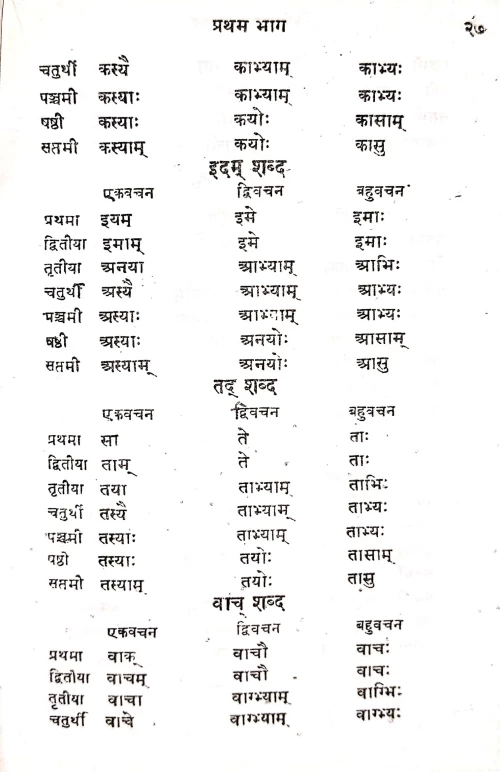 प्रथम भाग २७
चतुर्थी कस्यै काभ्याम् काभ्यः
पञ्चमी कस्याः काभ्याम् काभ्यः
षष्ठी कस्याः कयोः कासाम्
सप्तमी कस्याम् कयोः कासु
इदम् शब्द
एकवचन द्विवचन बहुवचन
प्रथमा इयम् इमे इमाः
द्वितीया इमाम् इमे इमाः
तृतीया अनया आभ्याम् आभिः
चतुर्थी अस्यै आभ्याम् आभ्यः
पञ्चमी अस्याः आभ्याम् आभ्यः
षष्ठी अस्याः अनयोः आसाम्
सप्तमी अस्याम् अनयोः आसु
तद् शब्द
एकवचन द्विवचन बहुवचन
प्रथमा सा ते ताः
द्वितीया ताम् ते ताः
तृतीया तया ताभ्याम् ताभिः
चतुर्थी तस्यै ताभ्याम् ताभ्यः
पञ्चमी तस्याः ताभ्याम् ताभ्यः
षष्ठी तस्याः तयोः तासाम्
सप्तमी तस्याम् तयोः तासु
वाच् शब्द
एकवचन द्विवचन बहुवचन
प्रथमा वाक् वाचौ वाचः
द्वितीया वाचम् वाचौ वाचः
तृतीया वाचा वाग्भ्याम् वाग्भिः
चतुर्थी वाचे वाग्भ्याम् वाग्भ्यः